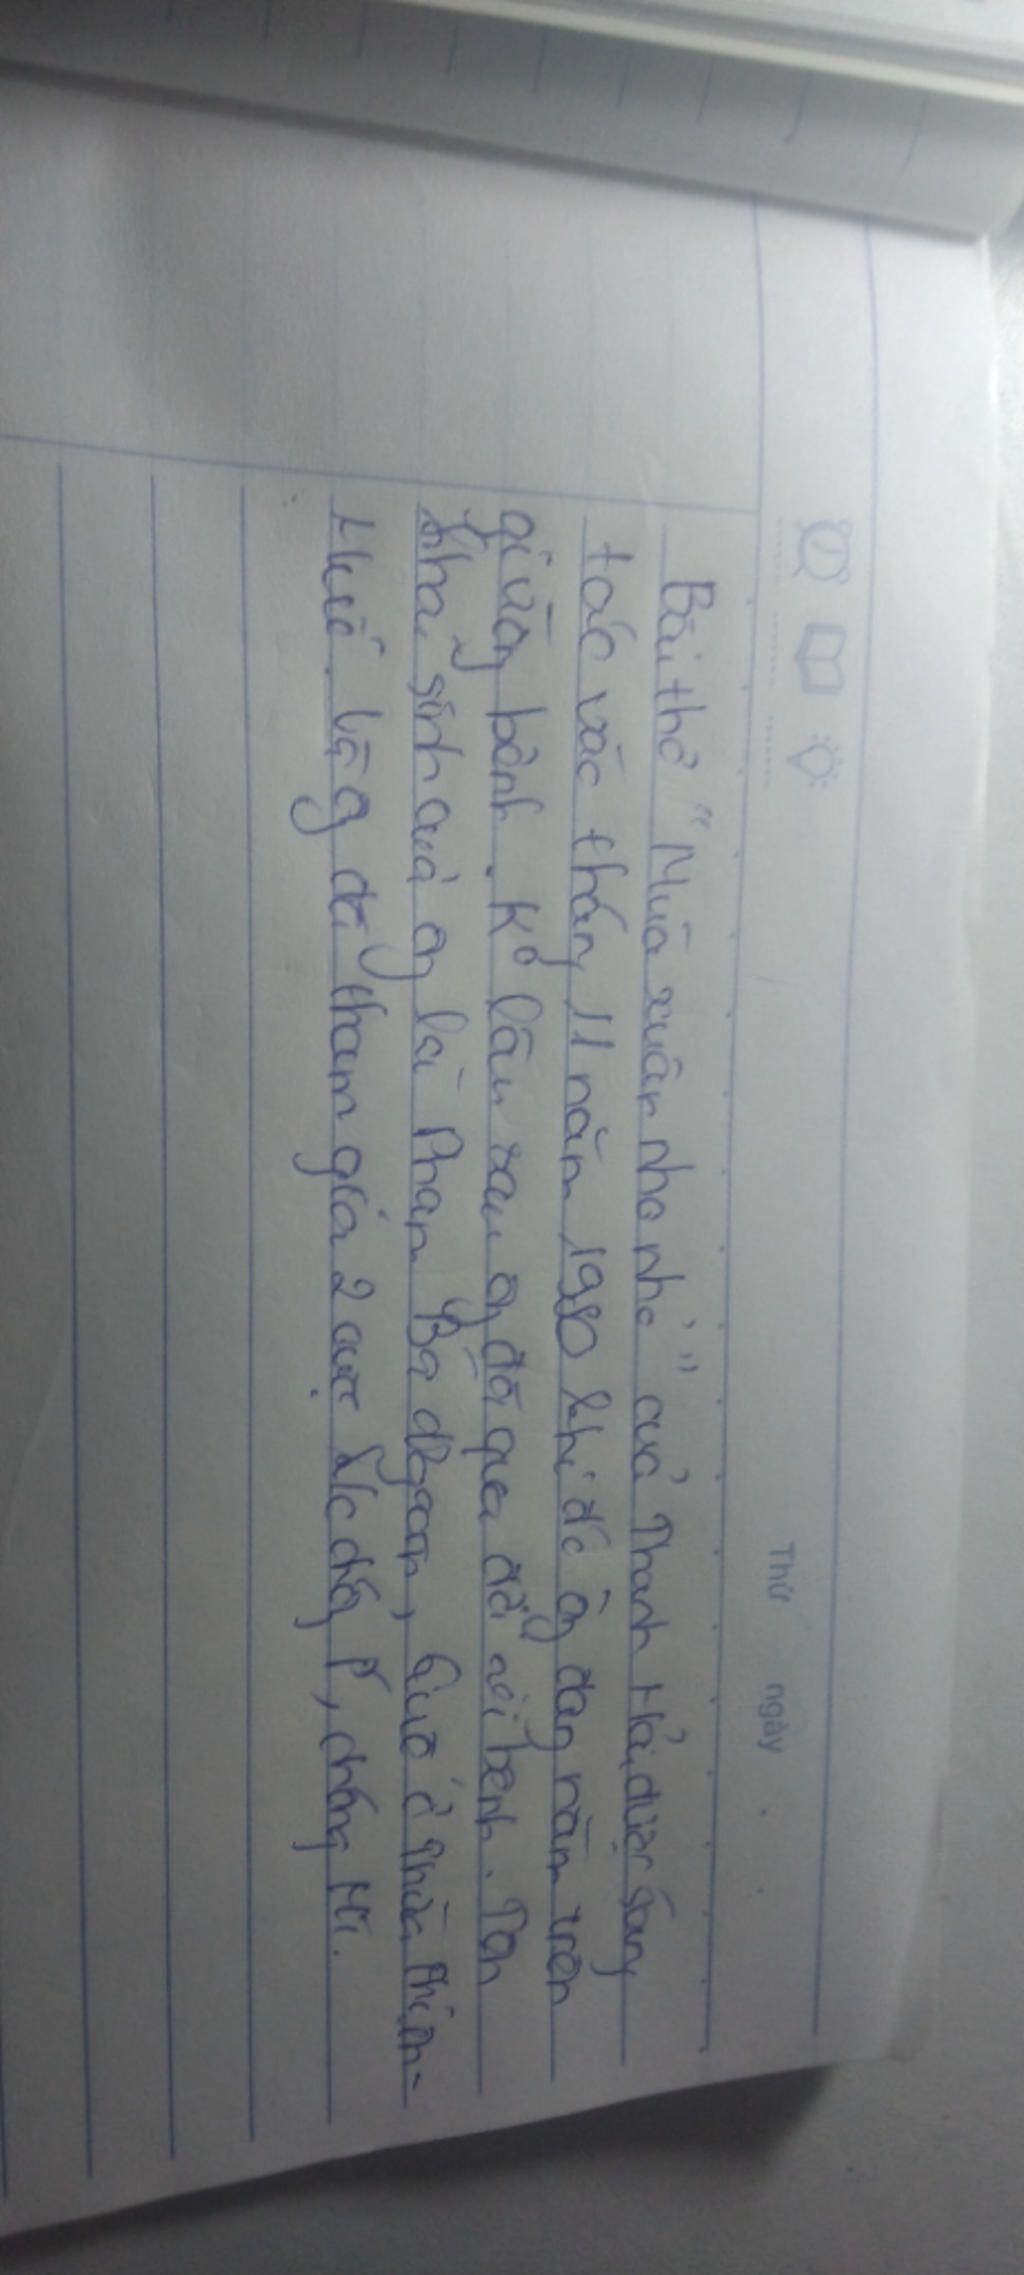 Thứ ngày
Bài thơ "Mùa xuân nho nhỏ" của Thanh Hải, được sáng
tác vào tháng 11 năm 1980 khi đó ông đang nằm trên
giường bệnh. Ko lâu sau ông đã qua đời vì bệnh. Tên
khai sinh của ông là Phạm Bá Ngoan, quê ở Thừa Thiên-
Huế. Ông đã tham gia 2 cuộc k/c chống P, chống Mĩ.